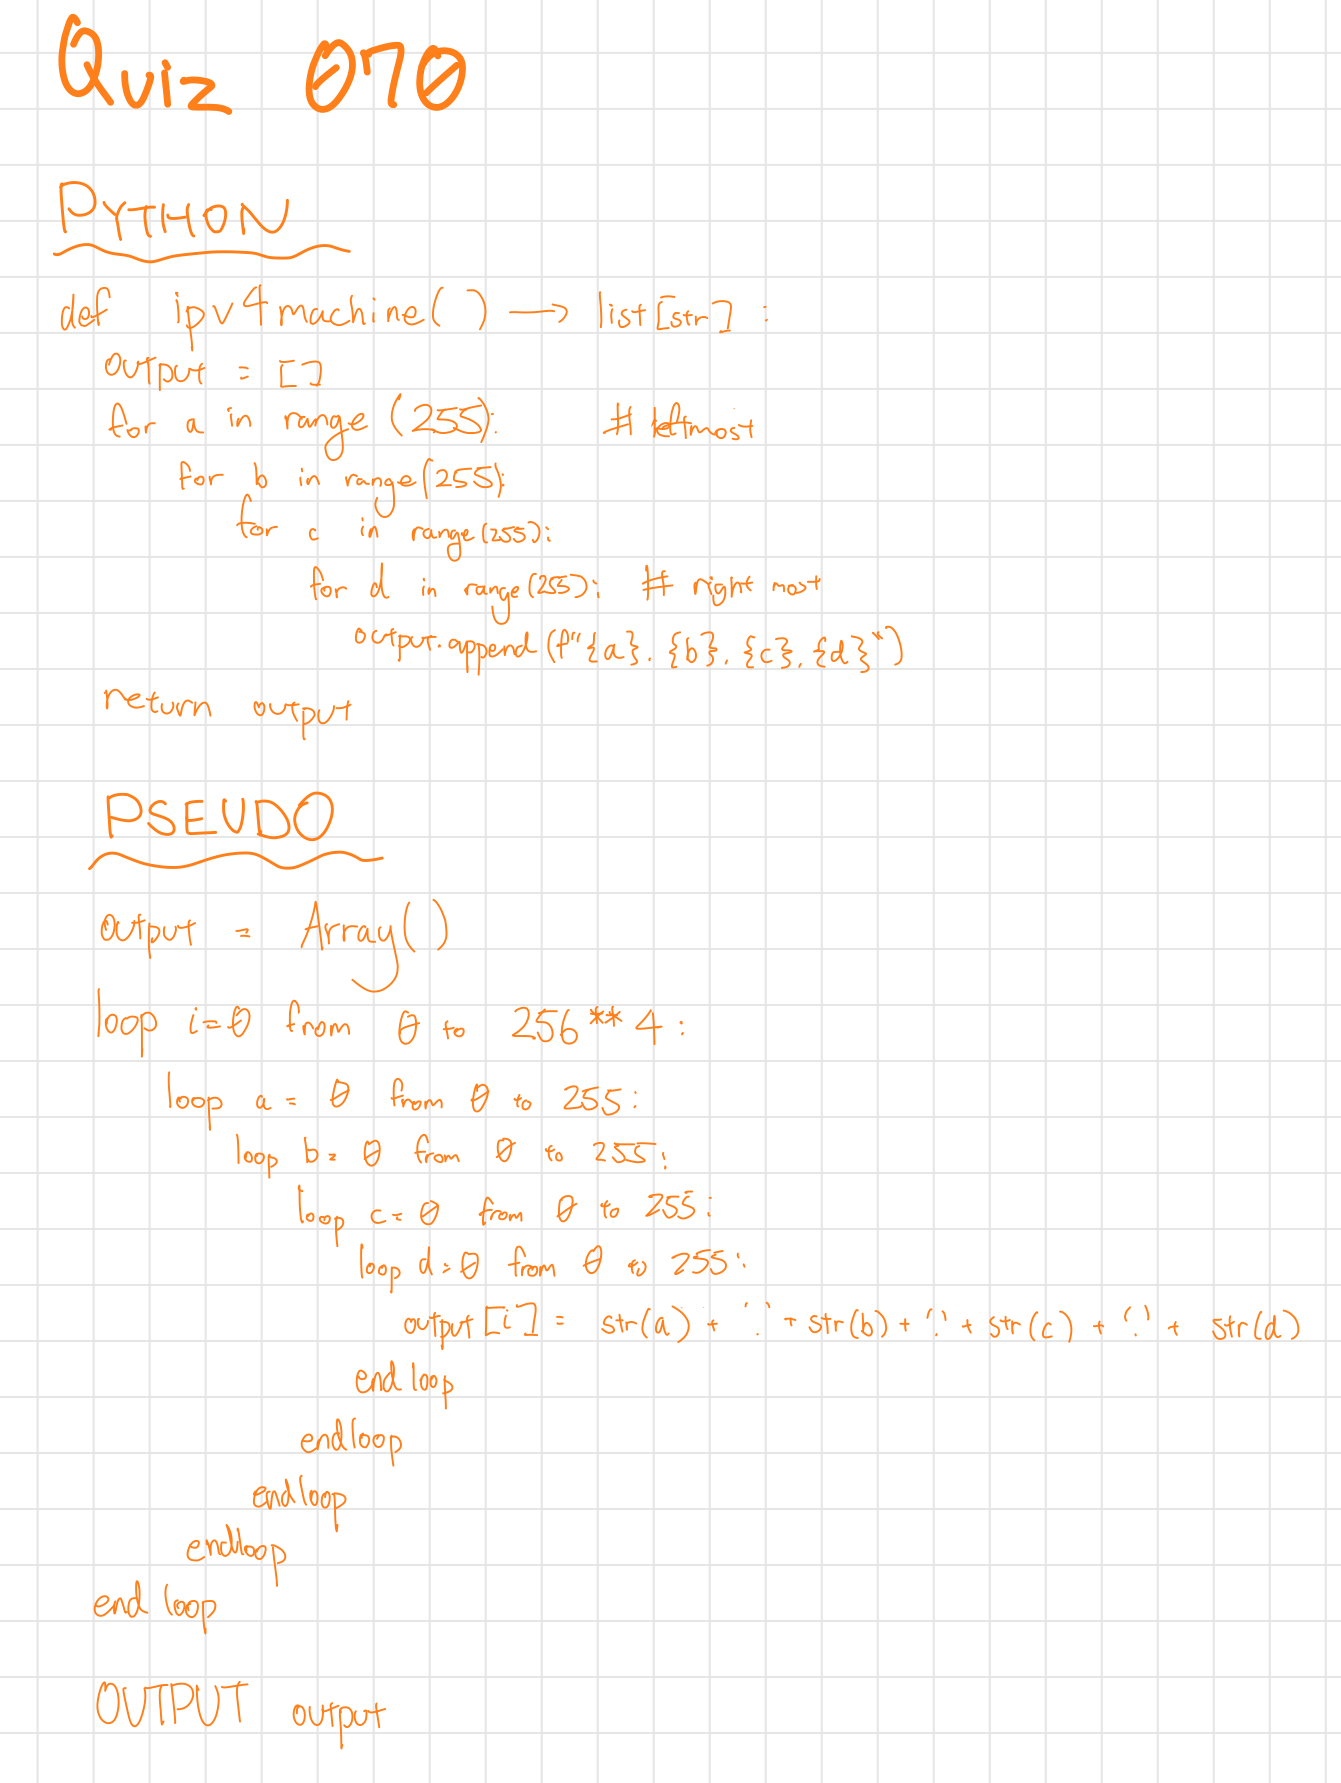 Quiz 070
PYTHON
def ipv4machine() → list[str]:
output = []
for a in range (255): # leftmost
for b in range(255):
for c in range(255):
for d in range(255): # right most
output.append(f"{a}.{b}.{c}.{d}")
return output
PSEUDO
output = Array()
loop i=0 from 0 to 256**4:
loop a = 0 from 0 to 255:
loop b= 0 from 0 to 255:
loop c= 0 from 0 to 255:
loop d=0 from 0 to 255:
output[i] = str(a) + '.' + str(b) + '.' + str(c) + '.' + str(d)
end loop
endloop
endloop
endloop
end loop
OUTPUT output